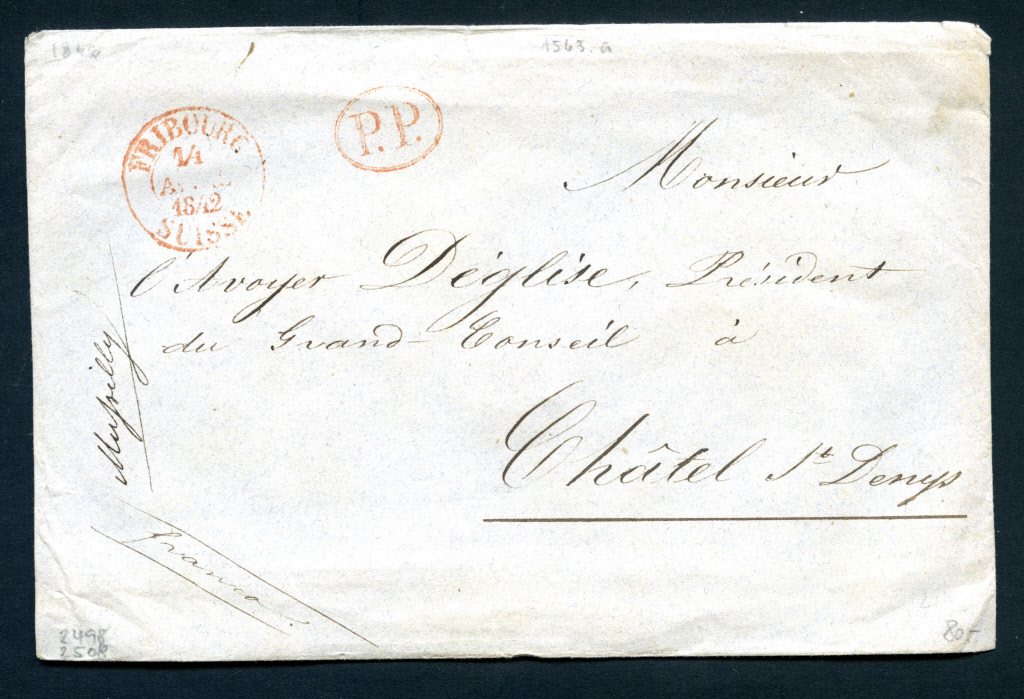 1563.a
P.P.
FRIBOURG
14
1842
SUISSE
Monsieur
l'Avoyer Déglise, Président
du Grand-Conseil à
Châtel St Denys
franco.
2498
2506
80.-